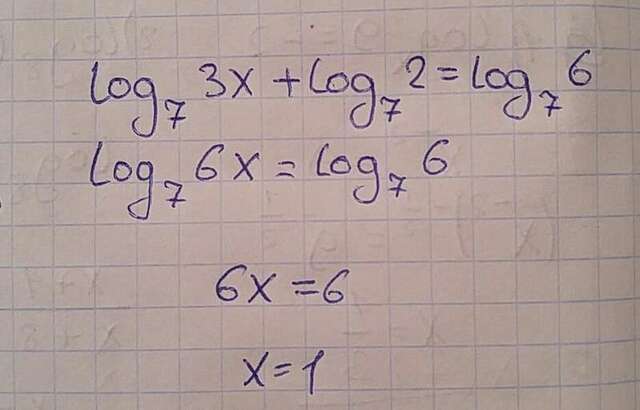 log₇ 3x + log₇ 2 = log₇ 6
log₇ 6x = log₇ 6
6x = 6
x = 1